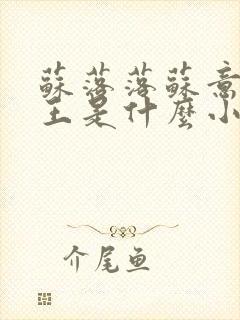 蘇落落蘇意
王是什麼小
介尾鱼